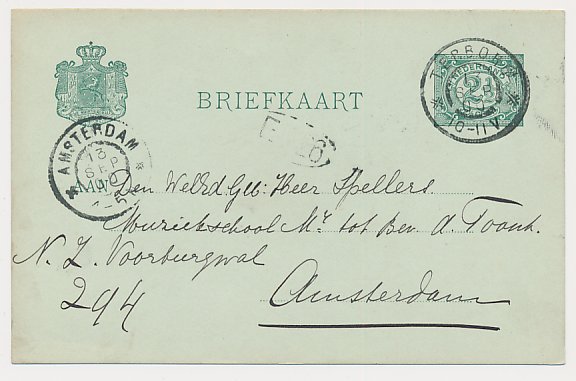 TERBORG
NEDERLAND
2½
10-11V
BRIEFKAART
AMSTERDAM
13
SEP
Den WelEd. Geb: Heer Spellers
Muziekschool Mij tot Bev. d. Toonk.
N. Z. Voorburgwal
294
Amsterdam